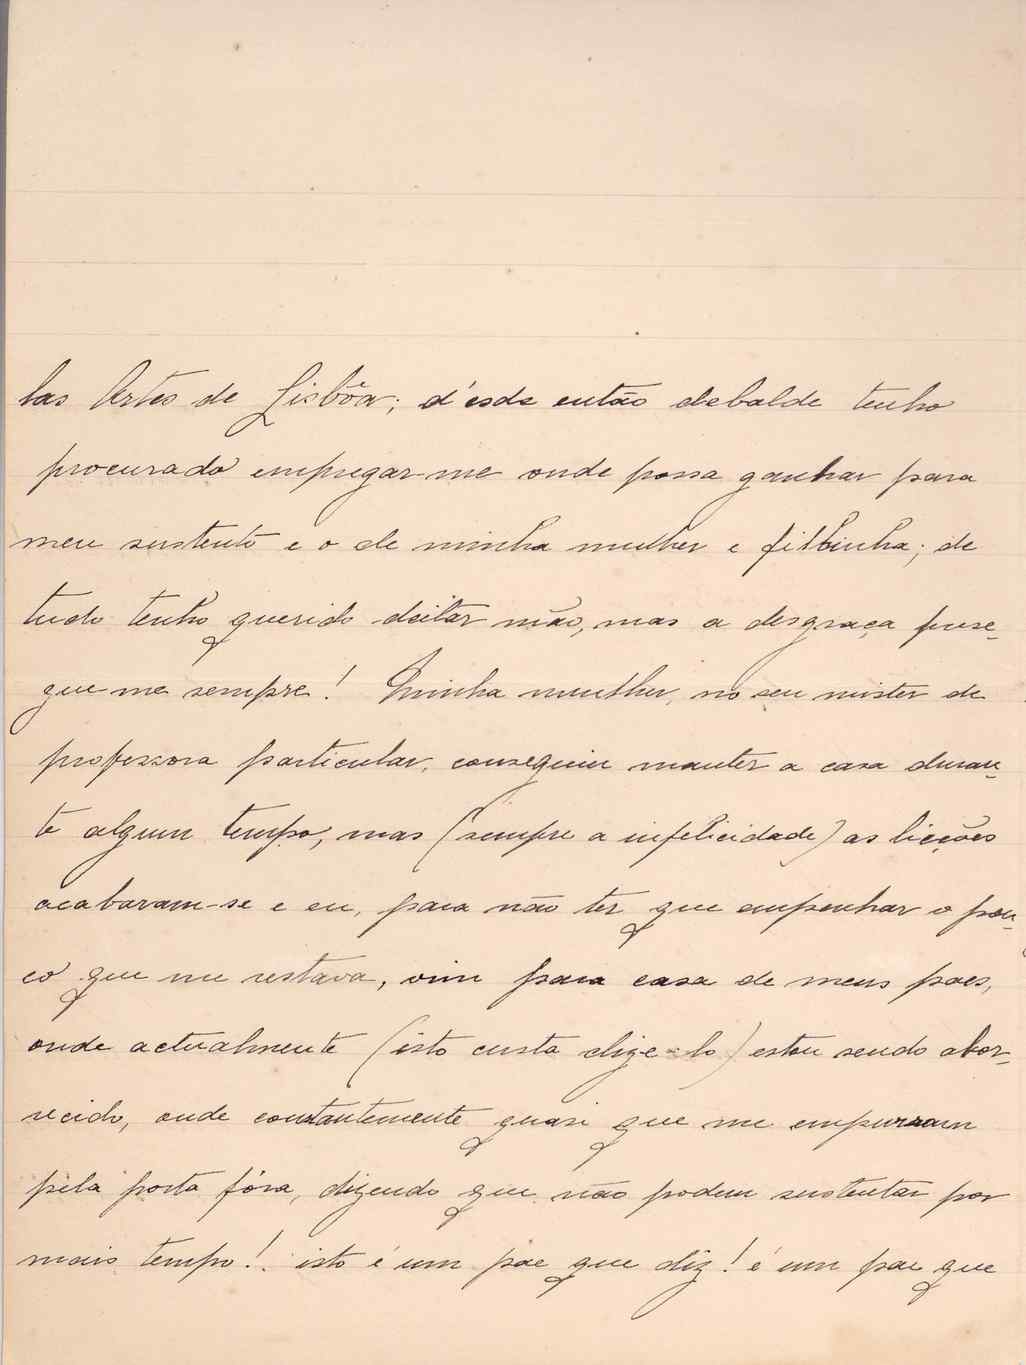 las Artes de Lisbôa; d'esde então debalde tenho
procurado empregar-me onde possa ganhar para
meu sustento e o de minha mulher e filhinha; de
tudo tenho querido deitar mão, mas a desgraça perse-
gue me sempre! Minha mulher, no seu mister de
professora particular, conseguiu manter a casa duran-
te algum tempo, mas (sempre a infelicidade) as licções
acabaram-se e eu, para não ter que empenhar o pou-
co que me restava, vim para casa de meus paes,
onde actualmente (isto custa dize-lo) estou sendo abor-
recido, onde constantemente quasi que me empurram
pela porta fóra, dizendo que não podem sustentar por
mais tempo! isto é um pae que diz! é um pae que